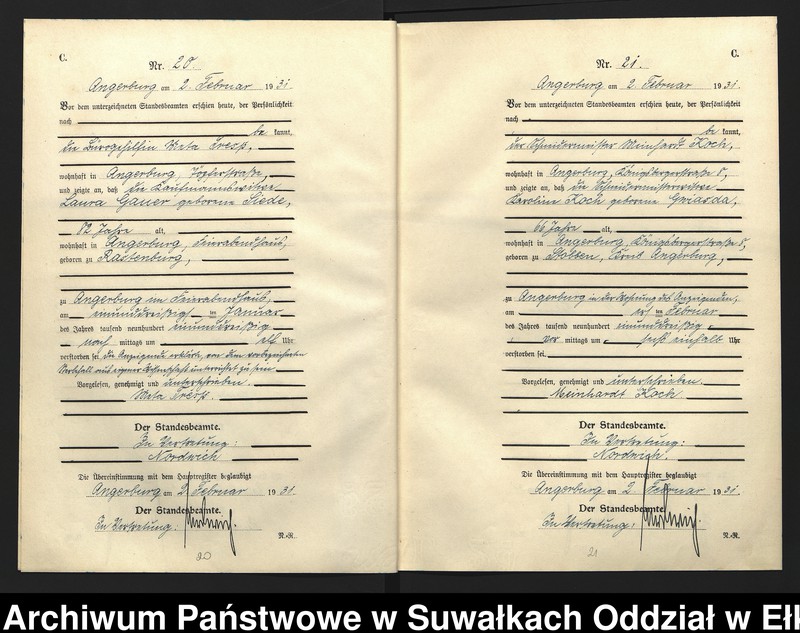 C.
Nr. 20.
Angerburg am 2. Februar 1931.
Vor dem unterzeichneten Standesbeamten erschien heute, der Persönlichkeit
nach
be kannt,
die Bürogehilfin Meta Tresp,
wohnhaft in Angerburg, Töpferstraße,
und zeigte an, daß die Kaufmannswitwe
Laura Gauer geborene Siede,
82 Jahre alt,
wohnhaft in Angerburg, Feierabendhaus,
geboren zu Rastenburg,
zu Angerburg im Feierabendhaus,
am einunddreißigsten Januar
des Jahres tausend neunhundert einunddreißig
nach mittags um elf Uhr
verstorben sei. Die Anzeigende erklärte, von dem vorbezeichneten
Sterbefall aus eigener Wissenschaft unterrichtet zu sein.
Vorgelesen, genehmigt und unterschrieben.
Meta Tresp.
Der Standesbeamte.
In Vertretung:
Nordwich
Die Übereinstimmung mit dem Hauptregister beglaubigt
Angerburg am 2. Februar 1931.
Der Standesbeamte.
In Vertretung:
R.-R.
20
C.
Nr. 21.
Angerburg am 2. Februar 1931.
Vor dem unterzeichneten Standesbeamten erschien heute, der Persönlichkeit
nach
be kannt,
der Schneidermeister Meinhardt Koch,
wohnhaft in Angerburg, Königsbergerstraße 8,
und zeigte an, daß die Schneidermeisterwitwe
Karoline Koch geborene Gwiasda,
66 Jahre alt,
wohnhaft in Angerburg, Königsbergerstraße 8,
geboren zu Stobben, Kreis Angerburg,
zu Angerburg in der Wohnung des Anzeigenden,
am ersten Februar
des Jahres tausend neunhundert einunddreißig
vor mittags um halb Uhr
verstorben sei.
Vorgelesen, genehmigt und unterschrieben.
Meinhardt Koch
Der Standesbeamte.
In Vertretung:
Nordwich.
Die Übereinstimmung mit dem Hauptregister beglaubigt
Angerburg am 2. Februar 1931.
Der Standesbeamte.
In Vertretung:
R.-R.
21
Archiwum Państwowe w Suwałkach Oddział w Ełk